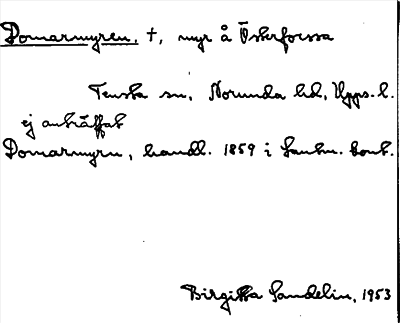 Domarmyren, †, myr å Österforssa
Tensta sn, Norunda hd, Upps. l.
ej anträffat
Domarmyrn, handl. 1859 i Lantm. kont.
Birgitta Sandelin, 1953